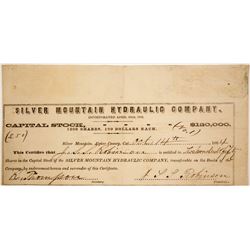 SILVER MOUNTAIN HYDRAULIC COMPANY,
INCORPORATED APRIL 25th, 1864.
CAPITAL STOCK, $120,000.
1200 SHARES, 100 DOLLARS EACH.
(250)
Silver Mountain, Alpine County, Cal. 14th 1864
This Certifies that J. L. L. Robinson is entitled to Two hundred fifty
Shares in the Capital Stock of the SILVER MOUNTAIN HYDRAULIC COMPANY, transferable on the Books of the
Company, by indorsement hereon and surrender of this Certificate.
Thompson J. L. L. Robinson